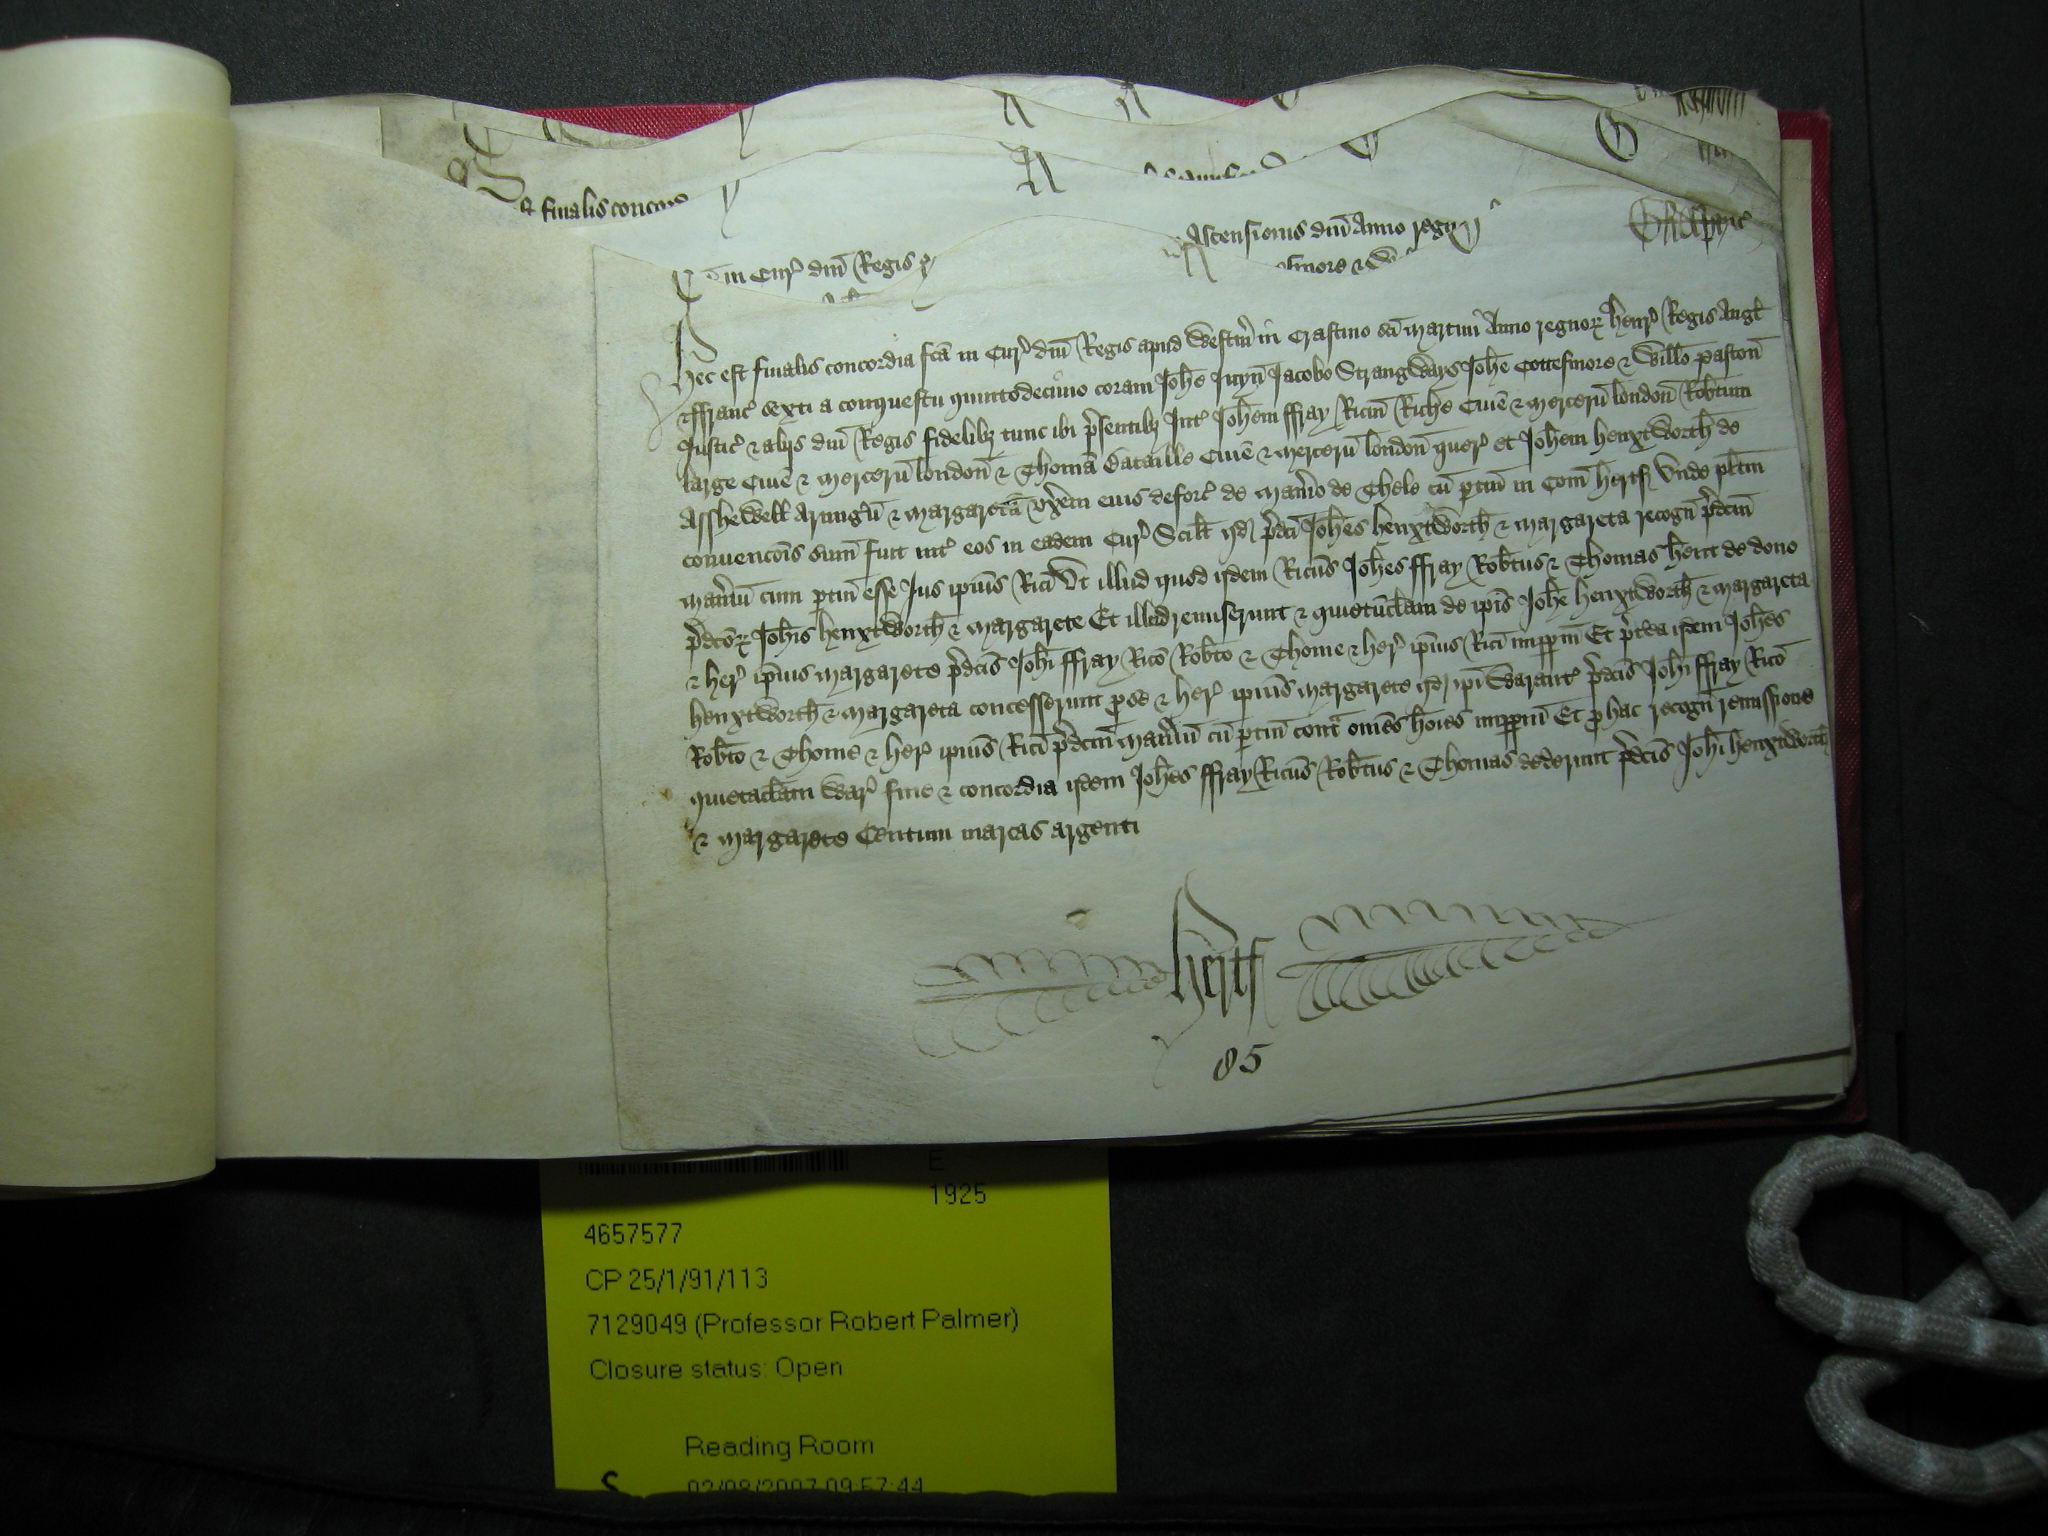 & finalis concor
in Cur' dn̄i Regis
Ascensionis dn̄i Anno regn
Hec est finalis concordia fcā in Cur' dn̄i Regis apud Westm̄ in Crastino sc̄i Martini Anno regnoꝝ Henr' Regis Angl'
& ffranc' sexti a conquestu quintodecimo coram Joh̄e Juyn̄ Jacobo Strangways Joh̄e Cottesmore & Will̄o Paston̄
Justic' & alijs dn̄i Regis fidelibꝫ tunc ibi p̄sentibꝫ Int' Joh̄em ffray Ricm̄ Riche Ciuē & mercerū london̄ Rob̄tum
large Ciuē & mercerū london̄ & Thomā Bataille Ciuē & mercerū london̄ quer' et Joh̄em henxtworth̄ de
Asshewell Armigū & Margaretā vx̄em eius defort' de Man̄io de Thele cū ptin̄ in Com̄ Hertf' Vnde pl̄itm̄
convencōis sum̄ fuit int' eos in eadem Cur' Scil̄t qd p̄dc̄i Joh̄es henxtworth̄ & Margareta recogn̄ p̄dcm̄
Man̄iū cum ptin̄ esse Jus ipius Rici Vt illud quod ijdem Ricus Joh̄es ffray Rob̄tus & Thomas h̄ent de dono
p̄dc̄oꝝ Joh̄is henxtworth̄ & Margarete Et illud remiserunt & quietūclam̄ de ip̄is Joh̄e henxtworth̄ & Margareta
& her' ip̄ius Margarete p̄dc̄is Joh̄i ffray Rico Rob̄to & Thome & her' ip̄ius Rici imppm̄ Et p̄t̄ea ijdem Joh̄es
henxtworth̄ & Margareta concesserunt p se & her' ip̄ius Margarete qd ip̄i Warant' p̄dc̄is Joh̄i ffray Rico
Rob̄to & Thome & her' ip̄ius Rici p̄dcm̄ Man̄iū cū ptin̄ contᵃ om̄es ho͞ies imppm̄ Et p hac recogn̄ remissione
quietaclam̄ War' fine & concordia ijdem Joh̄es ffray Ricus Rob̄tus & Thomas dederunt p̄dc̄is Joh̄i henxtworth̄
& Margarete Centum marcas argenti
Hertf'
85
E
1925
4657577
CP 25/1/91/113
7129049 (Professor Robert Palmer)
Closure status: Open
Reading Room
S
02/08/2007 09:57:44